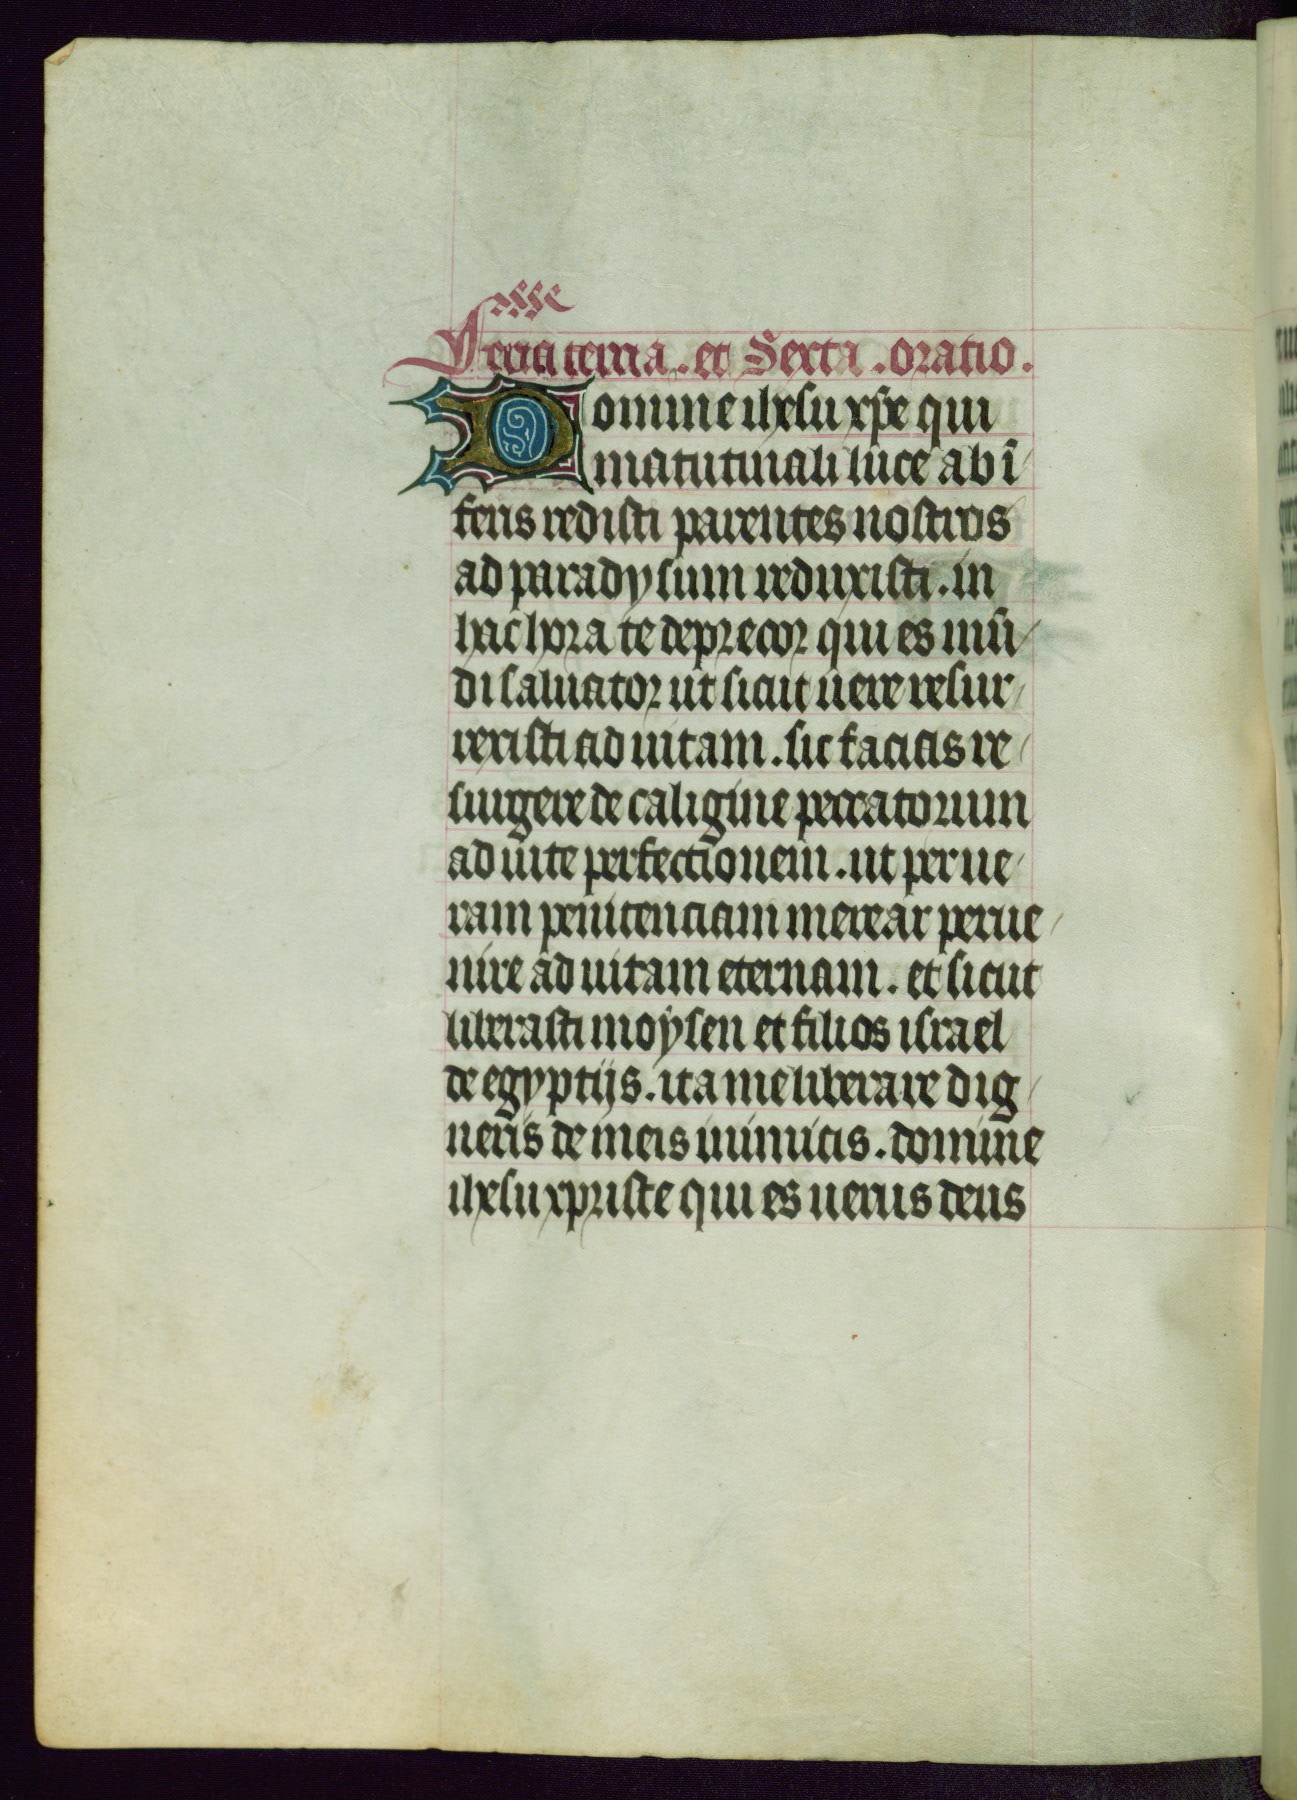 Feria tercia . et Sexta . oratio .
Domine ihesu xpe qui
matutinali luce ab ī
feris redisti parentes nostros
ad paradysum reduxisti . in
hac hora te deprecor qui es mū
di saluator ut sicut uere resur
rexisti ad uitam . sic facias re
surgere de caligine peccatorum
ad uite perfectionem . ut per ue
ram penitenciam merear perue
nire ad uitam eternam . et sicut
liberasti moysen et filios israel
de egyptijs . ita me liberare dig
neris de meis inimicis . domine
ihesu xpriste qui es uerus deus